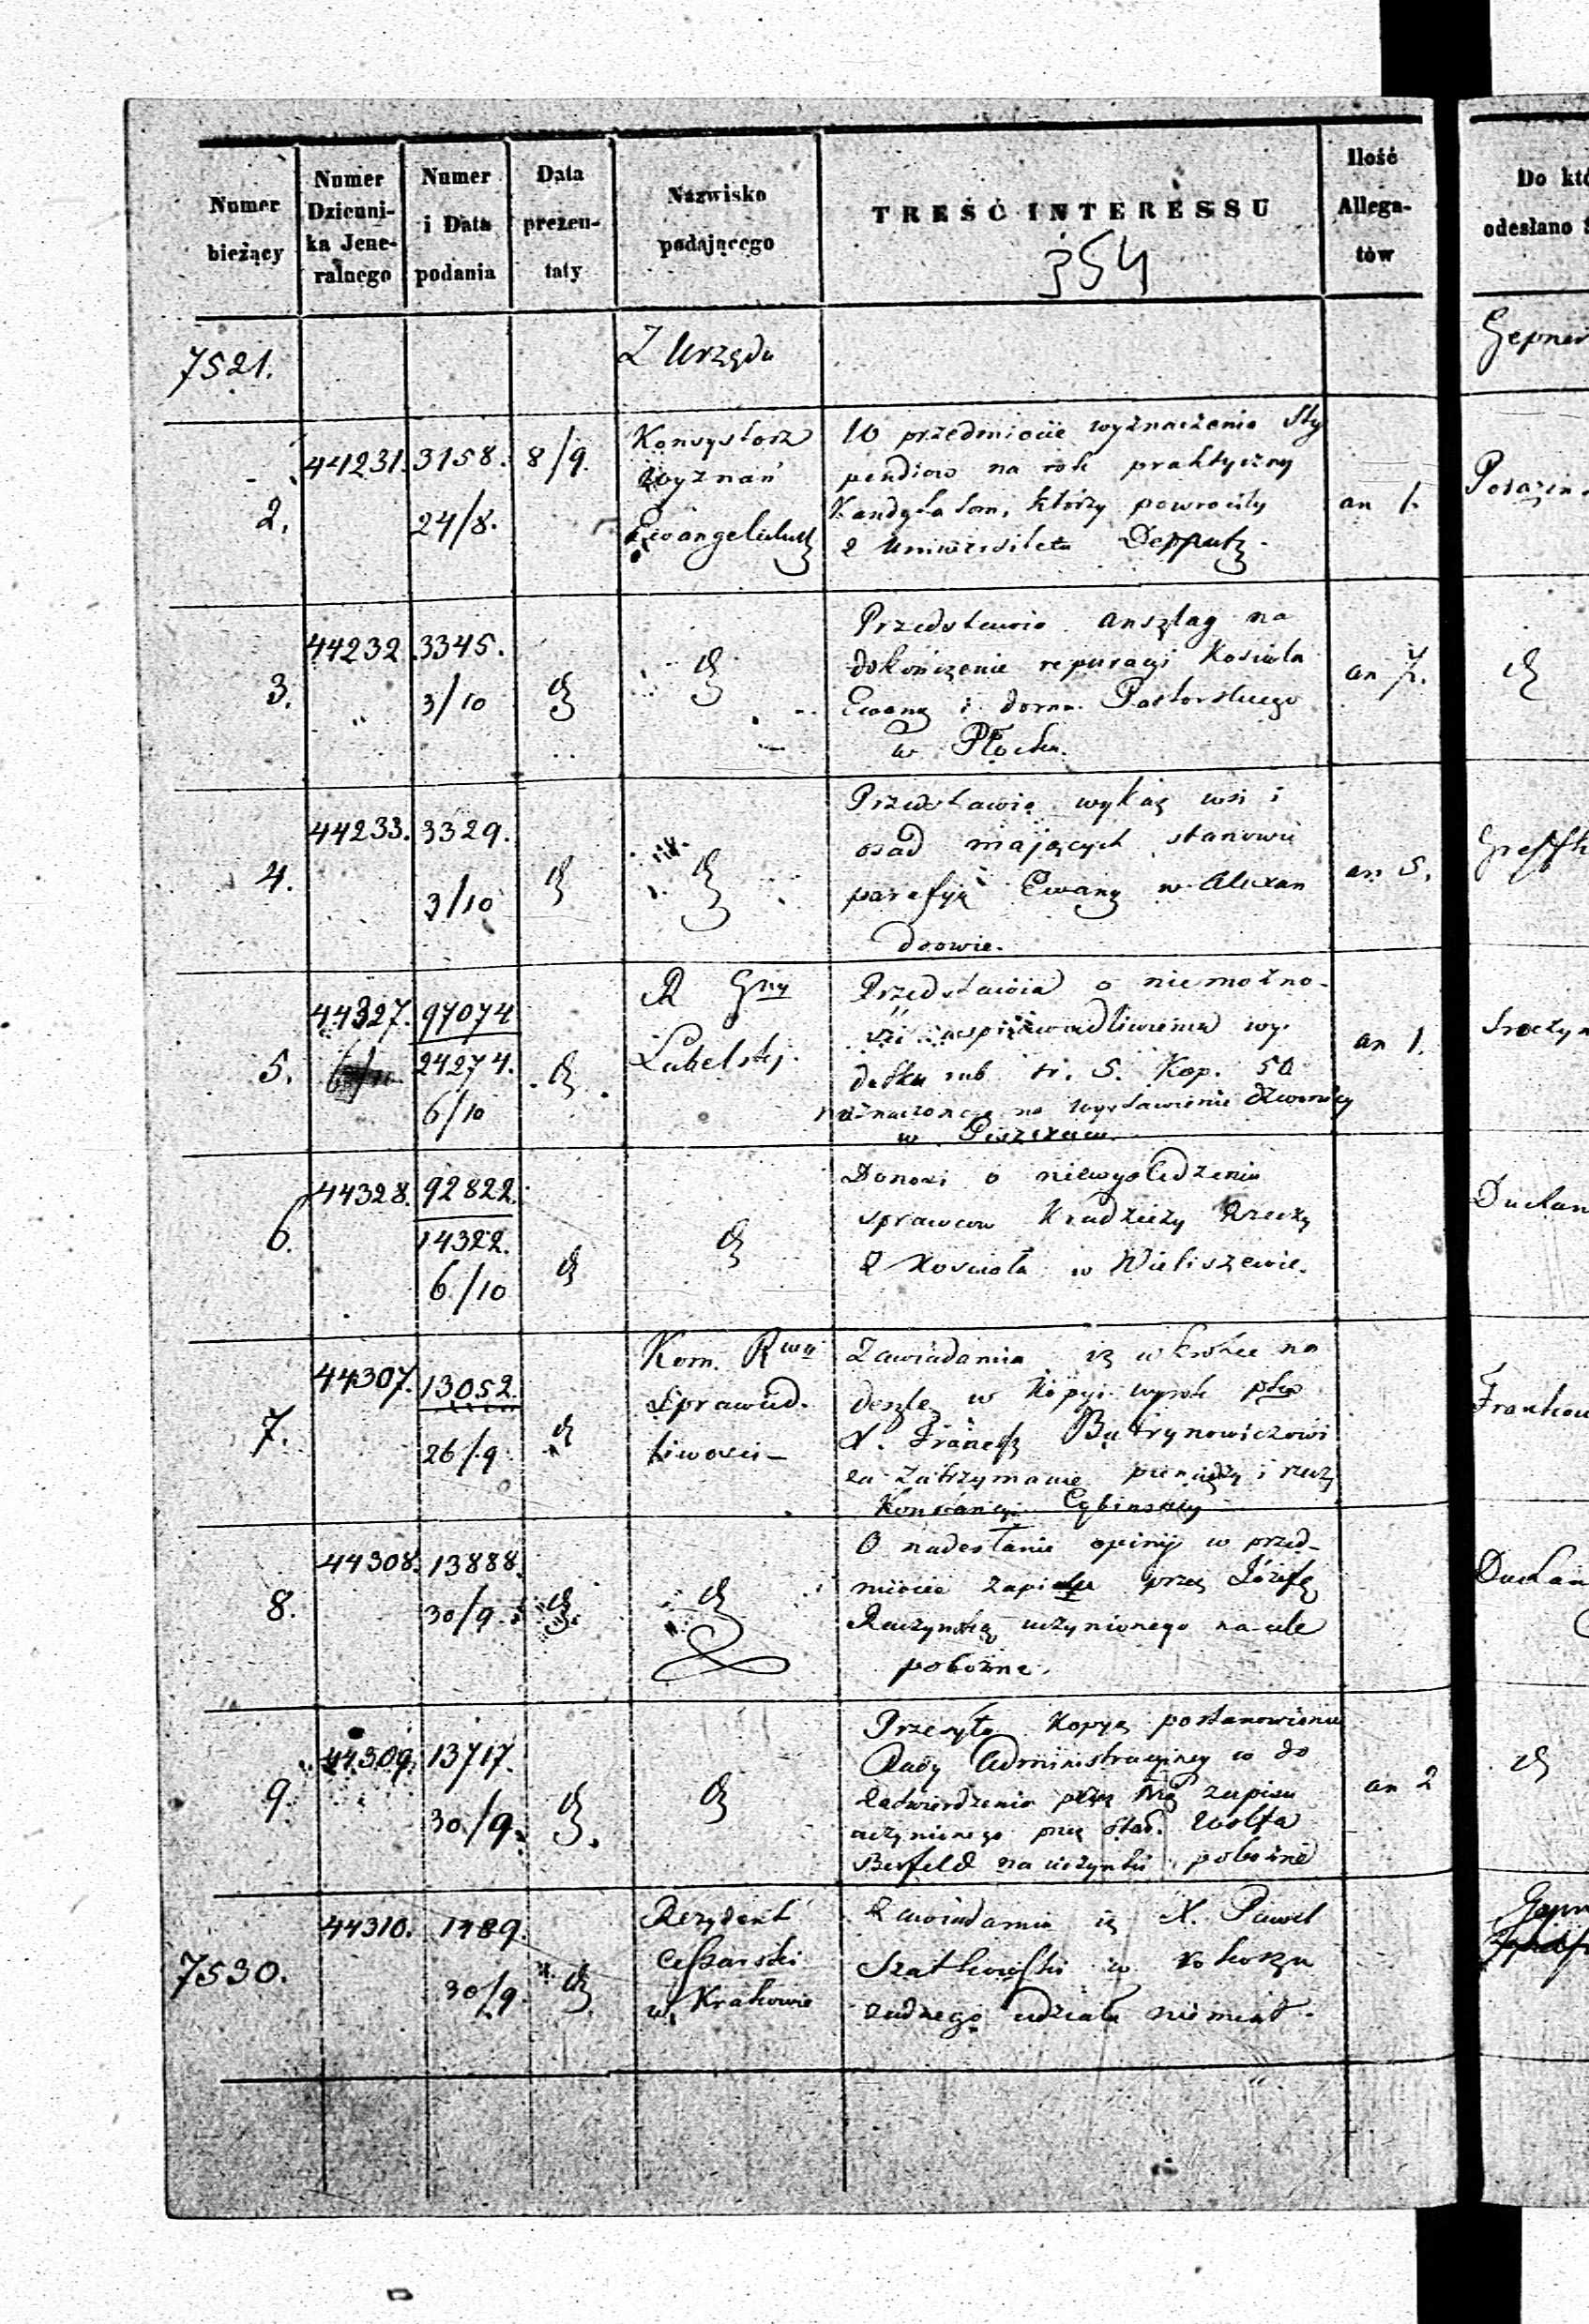 Numer bieżący
Numer Dzienni-ka Jene-ralnego
Numer i Data podania
Data prezen-taty
Nazwisko podającego
TREŚĆ INTERESSU
354
Ilość Allega-tów
Do któ
odesłano
7521.
Z Urzędu
2.
44231.
3158.
24/8.
8/9.
Konsystorz
Wyznań
W przedmiocie wyznaczenia Sty
pendiow na rok praktyczny
Kandydatom, którzy powrocily
z Uniwersitetu
an 1.
3.
44232
3345.
3/10
Przedstawia anszlag na
dokończenie reparacyi Kosciola
Ewang i domu Pastorskiego
w Płocku.
an 7.
4.
44233.
3329.
3/10
Przedstawia wykaz wsi i
osad mających stanowić
parafyą Ewang w Alexan
drowie.
an 5.
5.
44327.
97074
24274.
6/10
R Gny
Lubelskiej
Przedstawia o niemożno-
sci usprawiedliwienia wy-
datku rub sr. 5. Kop. 50
naznaczonego na wystawienie dzwonicy
w
an 1.
6.
44328.
92822.
14322.
6/10
Donosi o niewysledzeniu
sprawców Kradzieży Rzeczy
z Kosciola w Wieliszewie.
7.
44307.
13052.
26/9
Kom. Rwa
Sprawied.
liwosci-
Zawiadamia iż wkrótce na
deszle w Kopyi wyrok
X. Franc Butrynowiczowi
za zatrzymanie pieniędzy i rzeczy
Konstancyi
8.
44308.
13888.
30/9.
O nadesłanie opinij w przed-
miocie zapisu przez Józefę
Raczynską uczynionego na cele
pobożne.
9.
44309.
13717.
30/9.
Przesyła Kopyą postanowienia
Rady Administracyjney w do
zatwierdzenia przez zapisu
uczynionego przez Star. Wolfa
na uczynki pobożne
an 2
7530.
44310.
1489.
30/9
Rezydent
Cesarski
w Krakowie
Zawiadamia iż X. Paweł
Szatkowski w rokoszu
żadnego udziału niemiał.